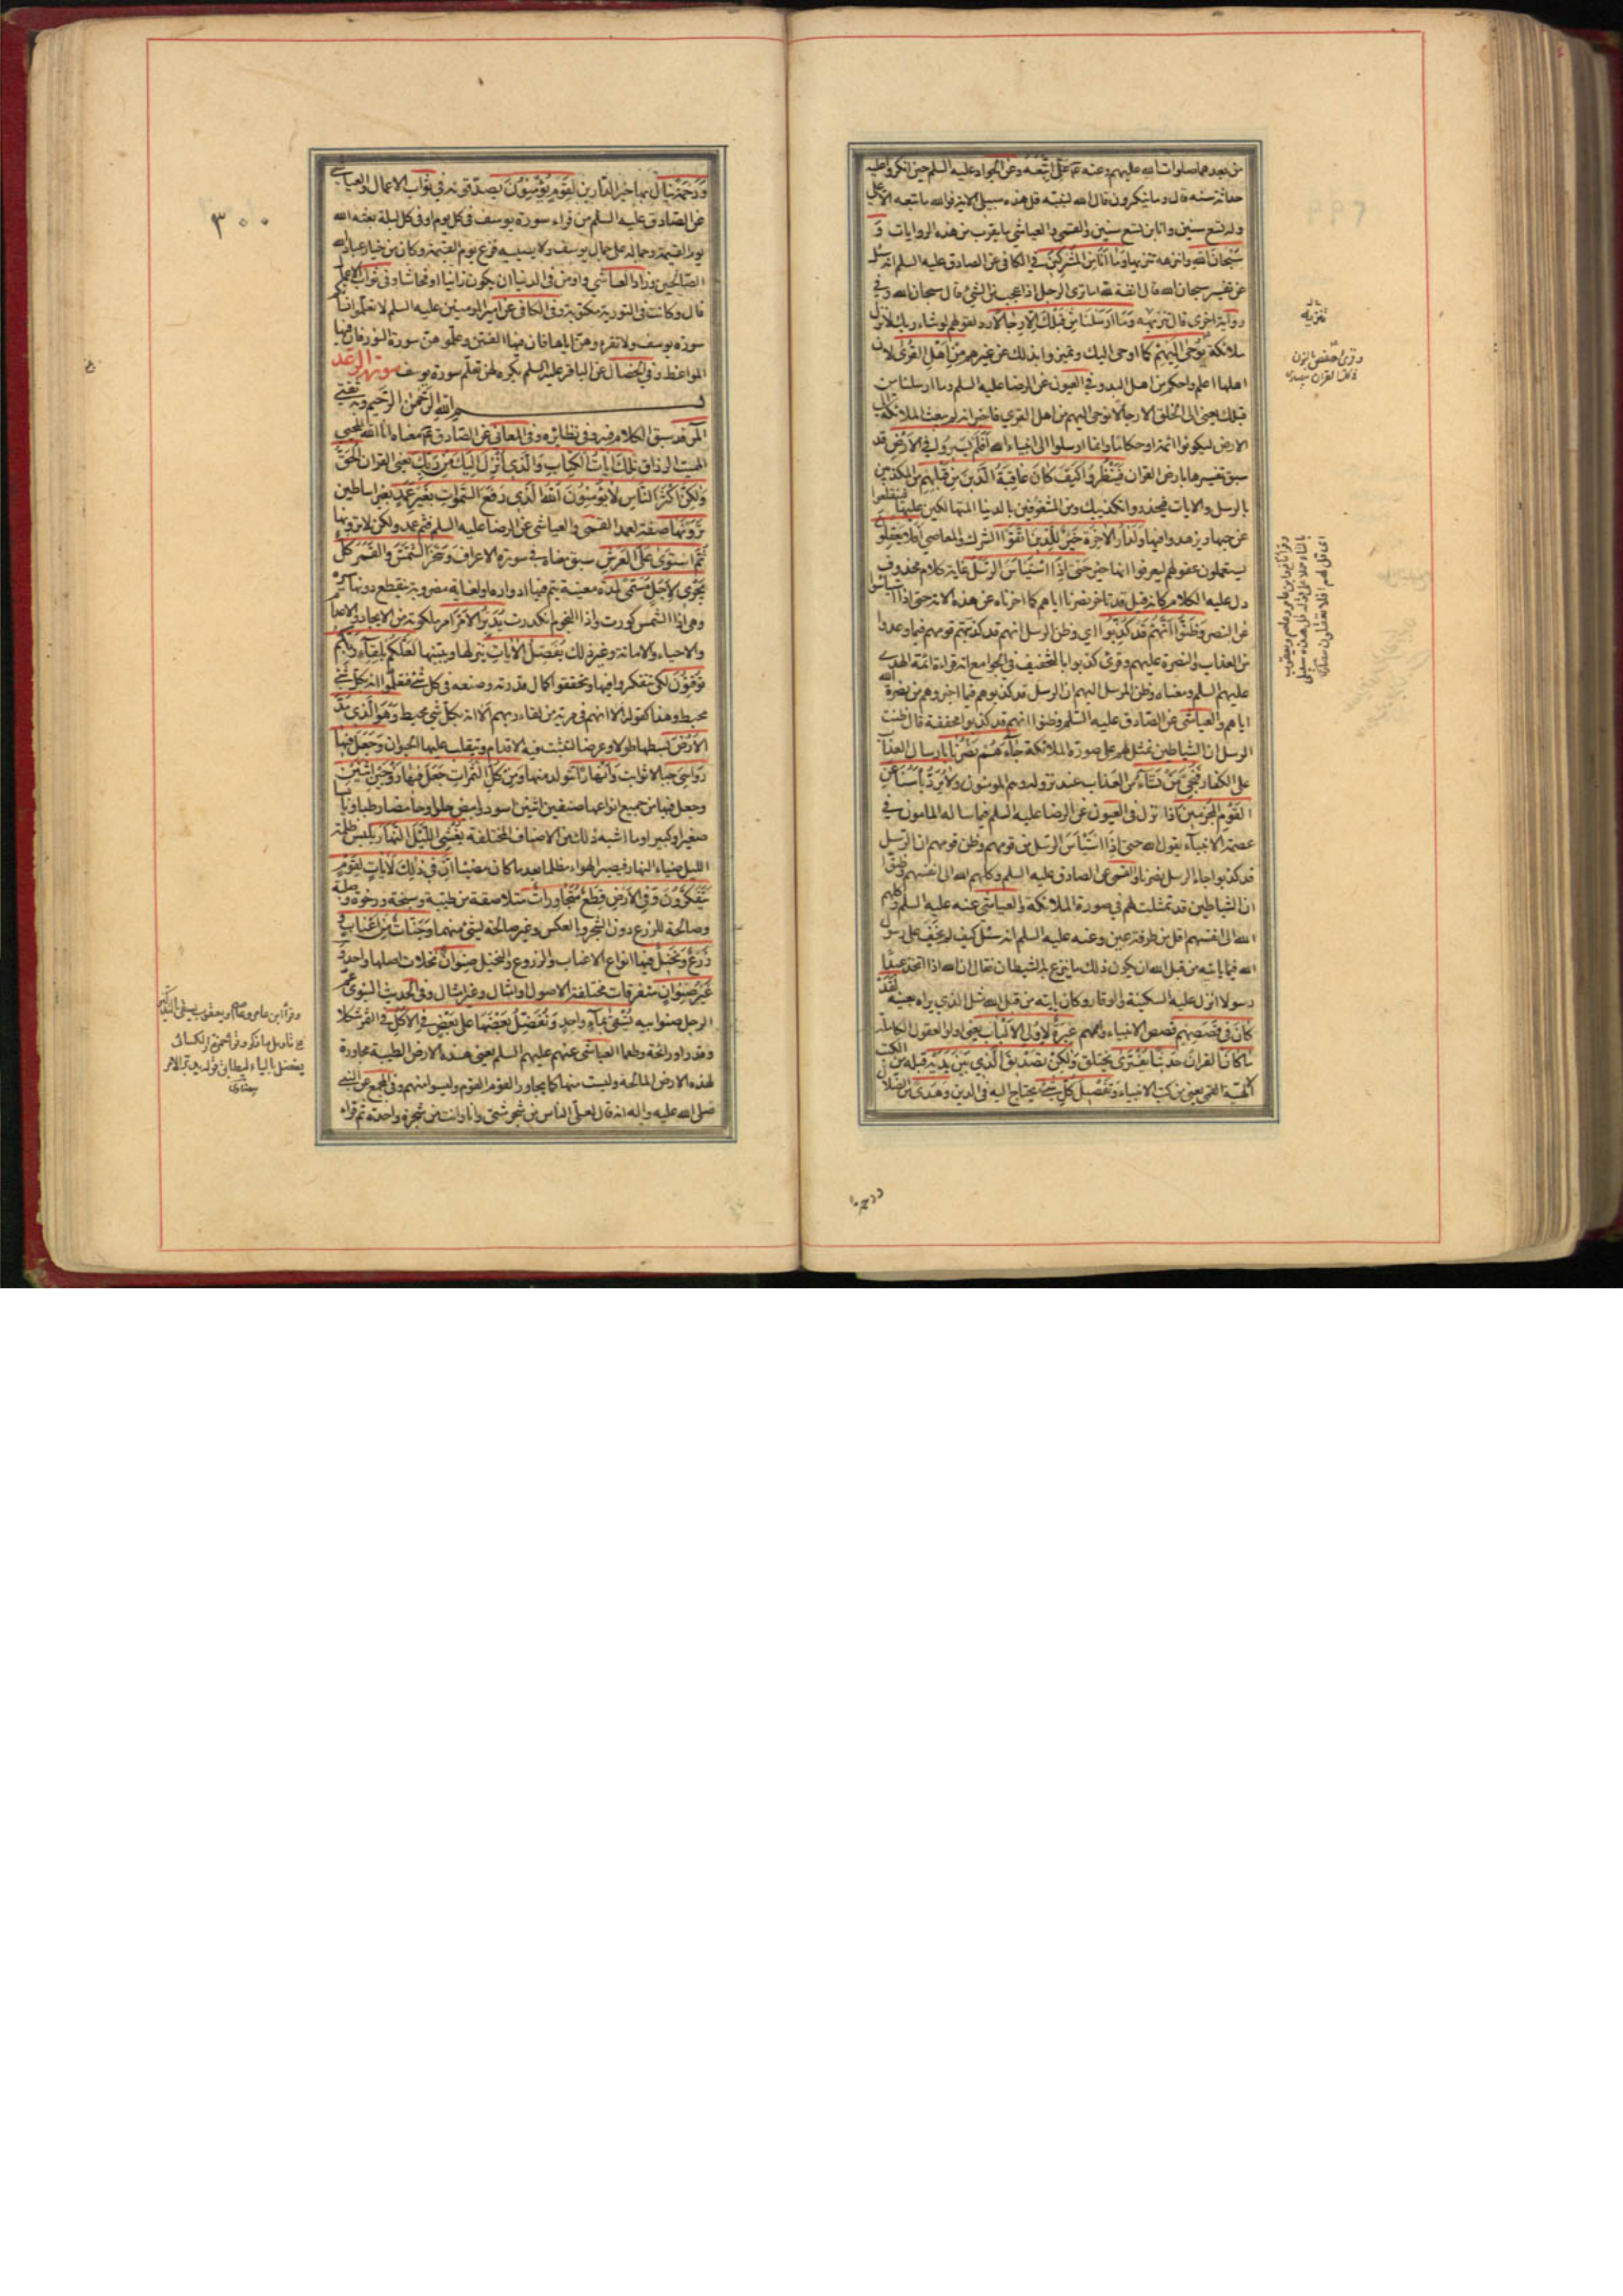 من بعدهما صلوات الله عليهم وعنه علي اتبعه وعن الجواد عليه السلم حين انكروا عليه
حداثة سنه قال وما ينكرون قال الله لنبيه قل هذه سبيلي الاية فوالله ما تبعه الا علي
وله تسع سنين وانا ابن تسع سنين والقمي والعياشي ما يقرب من هذه الروايات و
سبحان الله وانزهه تنزيها وما انا من المشركين في الكافي عن الصادق عليه السلم انه سئل
عن تفسير سبحان الله قال انفة لله اما ترى الرجل اذا عجب من الشئ قال سبحان الله وفي
رواية اخرى قال تنزيهه وما ارسلنا من قبلك الا رجالا رد لقولهم لو شاء ربنا لانزل
ملائكة يوحى اليهم كما اوحى اليك وتميزوا بذلك عن غيرهم من اهل القرى لان
اهلها اعلم واحكم من اهل البدو وفي العيون عن الرضا عليه السلم وما ارسلنا من
قبلك يعني الى الخلق الا رجالا نوحي اليهم من اهل القرى فاخبر انه لم يبعث الملائكة الى
الارض ليكونوا ائمة او حكاما وانما ارسلوا الى انبياء الله افلم يسيروا في الارض قد
سبق تفسيرها بارض القران فينظروا كيف كان عاقبة الذين من قبلهم من المكذبين
بالرسل والايات فيحذروا تكذيبك ومن المشغوفين بالدنيا المتهالكين عليها فيتقلعوا
عن حبها ويزهدوا فيها ولدار الاخرة خير للذين اتقوا الشرك والمعاصي افلا يعقلو
يستعملون عقولهم ليعرفوا انها خير حتى اذا استيأس الرسل غاية كلام محذوف
دل عليه الكلام كانه قيل قد تاخر نصرنا اياهم كما اخرناه عن هذه الامة حتى اذا استيأسوا
عن النصر وظنوا انهم قد كذبوا اي وظن الرسل انهم قد كذبتهم قومهم فيما وعدوا
من العذاب والنصرة عليهم وقرئ كذبوا بالتخفيف في الجوامع انه قراءة ائمة الهدى
عليهم السلم ومعناه وظن المرسل اليهم ان الرسل قد كذبوهم فيما اخبروهم من نصرة الله
اياهم والعياشي عن الصادق عليه السلم وظنوا انهم قد كذبوا مخففة قال ظنت
الرسل ان الشياطين تمثل لهم على صورة الملائكة جاءهم نصرنا بارسال العذاب
على الكفار فنجي من نشاء من العذاب عند نزوله وهم المؤمنون ولا يرد بأسنا عن
القوم المجرمين اذا نزل في العيون عن الرضا عليه السلم فيما ساله المامون في
عصمة الانبياء يقول الله حتى اذا استيأس الرسل من قومهم وظن قومهم ان الرسل
قد كذبوا جاء الرسل نصرنا والقمي عن الصادق عليه السلم وكلهم الله الى انفسهم فظنوا
ان الشياطين قد تمثلت لهم في صورة الملائكة والعياشي عنه عليه السلم وكلهم
الله الى انفسهم اقل من طرفة عين وعنه عليه السلم انه سئل كيف لم يخف على رسول
الله فيما ياتيه من قبل الله ان يكون ذلك ما ينزغ به الشيطان فقال ان الله اذا اتخذ عبدا
رسولا انزل عليه السكينة والوقار وكان ياتيه من قبل الله مثل الذي يراه بعينه لقد
كان في قصصهم قصص الانبياء واممهم عبرة لاولي الالباب يعني اولو العقول الكاملة
ما كان القران حديثا يفترى يختلق ولكن تصديق الذي بين يديه قبله من الكتب
الالهية القمي يعني من كتب الانبياء وتفصيل كل شئ يحتاج اليه في الدين وهدى من الضلال
ورحمة
ورحمة ينال بها خير الدارين لقوم يؤمنون يصدقونه في ثواب الاعمال والعياشي
عن الصادق عليه السلم من قراء سورة يوسف في كل يوم او في كل ليلة بعثه الله
يوم القيمة وجماله على جمال يوسف ولا يصيبه فزع يوم القيمة وكان من خيار عباد الله
الصالحين وزاد العياشي واومن في الدنيا ان يكون زانيا او فحاشا وفي ثواب الاعمال
قال وكانت في التورية مكتوبة وفي الكافي عن امير المومنين عليه السلم لا تعلموا نساءكم
سورة يوسف ولا تقرءوهن اياها فان فيها الفتن وعلموهن سورة النور فان فيها
المواعظ وفي الخصال عن الباقر عليه السلم يكره لهن تعلم سورة يوسف سورة الرعد
بسم الله الرحمن الرحيم وبه ثقتي
المر قد سبق الكلام فيه وفي نظائره وفي المعاني عن الصادق ع معناه انا الله المحيي
المميت الرزاق تلك ايات الكتاب والذي انزل اليك من ربك يعني القران الحق
ولكن اكثر الناس لا يؤمنون الله الذي رفع السموات بغير عمد بغير اساطين
ترونها صفة لعمد القمي والعياشي عن الرضا عليه السلم فثم عمد ولكن لا ترونها
ثم استوى على العرش سبق معناه في سورة الاعراف وسخر الشمس والقمر كل
يجري لاجل مسمى لمدة معينة يتم فيها ادواره او لغاية مضروبة ينقطع دونها سيره
وهي اذا الشمس كورت واذا النجوم انكدرت يدبر الامر امر ملكوته من الايجاد والاعدام
والاحياء والاماتة وغير ذلك يفصل الايات ينزلها ويبينها لعلكم بلقاء ربكم
توقنون لكي تتفكروا فيها وتتحققوا كمال قدرته وصنعه في كل شئ فتعلموا انه بكل شئ
محيط وهذا كقوله الا انهم في مرية من لقاء ربهم الا انه بكل شئ محيط وهو الذي مد
الارض بسطها طولا وعرضا لتثبت فيه الاقدام ويتقلب عليها الحيوان وجعل فيها
رواسي جبالا ثوابت وانهارا تتولد منها ومن كل الثمرات جعل فيها زوجين اثنين
وجعل فيها من جميع انواعها صنفين اثنين اسود وابيض حلوا وحامضا رطبا ويابسا
صغيرا وكبيرا وما اشبه ذلك من الاصناف المختلفة يغشي الليل النهار يلبس ظلمة
الليل ضياء النهار فيصير الهواء مظلما بعد ما كان مضيئا ان في ذلك لايات لقوم
يتفكرون وفي الارض قطع متجاورات متلاصقة من طيبة وسبخة ورخوة وصلبة
وصالحة للزرع دون الشجر وبالعكس وغير صالحة لشئ منهما وجنات من اعناب و
زرع ونخيل فيها انواع الاعناب والزروع والنخيل صنوان نخلات اصلها واحد و
غير صنوان متفرقات مختلفة الاصول وامثال وغير امثال وفي الحديث النبوي عم
الرجل صنو ابيه تسقى بماء واحد ونفضل بعضها على بعض في الاكل في الثمر شكلا
وقدرا ورائحة وطعما العياشي عنهم عليهم السلم يعني هذه الارض الطيبة مجاورة
لهذه الارض المالحة وليست منها كما يجاور القوم القوم وليسوا منهم وفي المجمع عن النبي
صلى الله عليه واله انه قال لعلي الناس من شجر شتى وانا وانت من شجرة واحدة ثم قراء
٣٠٠